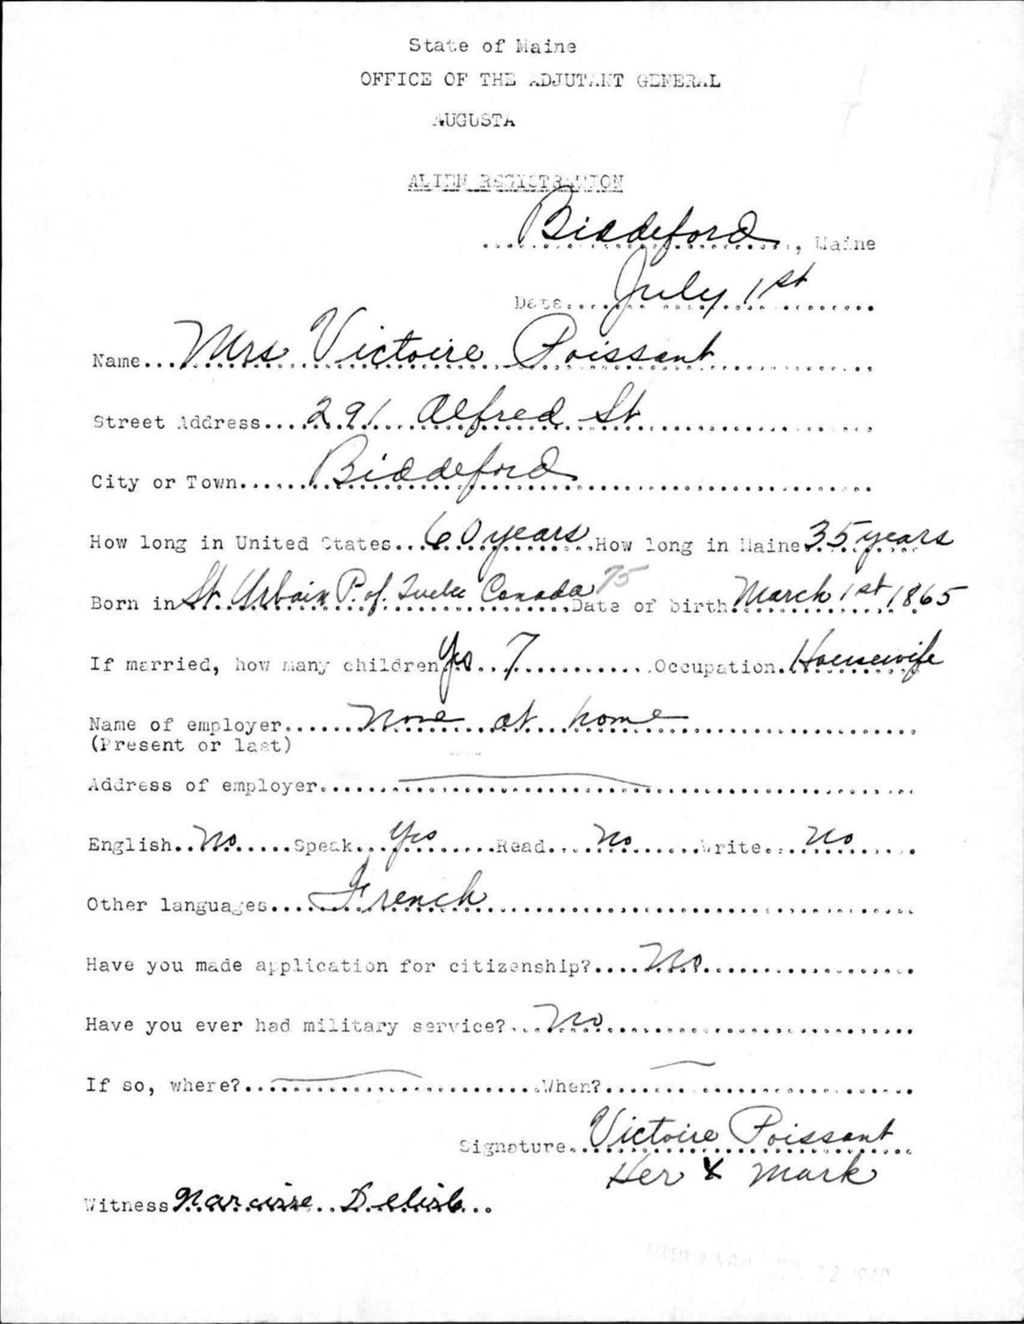 State of Maine
OFFICE OF THE ADJUTANT GENERAL
AUGUSTA
ALIEN REGISTRATION
Biddeford, Maine
Date July 1st
Name Mrs Victoire Poissant
Street Address 291 Alfred St
City or Town Biddeford
How long in United States 60 years How long in Maine 35 years
Born in St. Urbain P. of Quebec Canada 75 Date of birth March 1st 1865
If married, how many children Yes 7 Occupation Housewife
Name of employer none at home
(Present or last)
Address of employer
English No Speak Yes Read No Write No
Other languages French
Have you made application for citizenship? No
Have you ever had military service? No
If so, where? When?
Signature Victoire Poissant
Her X Mark
Witness Narcisse Delisle